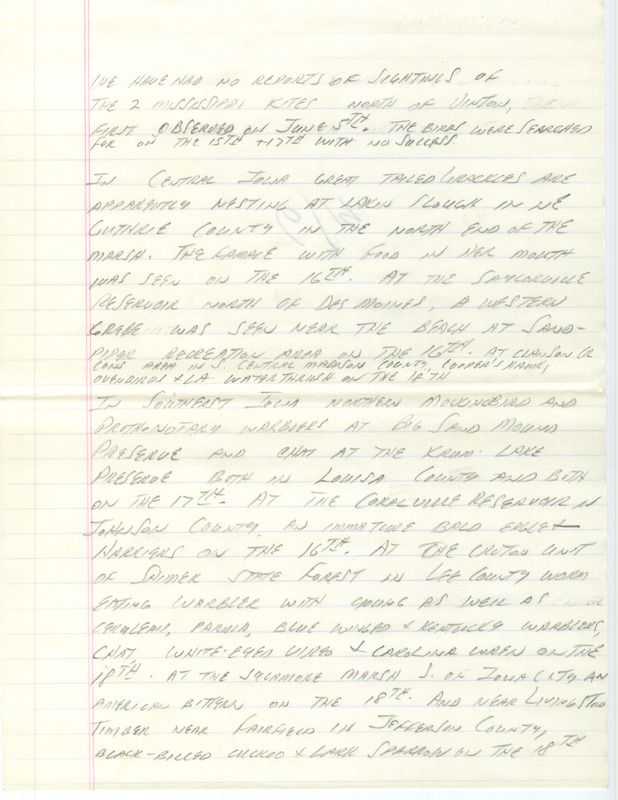 I'VE HAVE HAD NO REPORTS OF SIGHTINGS OF
THE 2 MISSISSIPPI KITES NORTH OF VINTON,
FIRST OBSERVED ON JUNE 5TH. THE BIRDS WERE SEARCHED
FOR ON THE 15TH + 17TH WITH NO SUCCESS.
IN CENTRAL IOWA GREAT TAILED GRACKLES ARE
APPARENTLY NESTING AT LAKIN SLOUGH IN NE
GUTHRIE COUNTY IN THE NORTH END OF THE
MARSH. THE FEMALE WITH FOOD IN HER MOUTH
WAS SEEN ON THE 16TH. AT THE SAYLORVILLE
RESERVOIR NORTH OF DES MOINES, A WESTERN
GREBE WAS SEEN NEAR THE BEACH AT SAND-
PIPER RECREATION AREA ON THE 16TH. AT CLANSON CR
CONS AREA IN S. CENTRAL MADISON COUNTY, COOPER'S HAWK,
OVENBIRDS + LA. WATERTHRUSH ON THE 18TH
IN SOUTHEST IOWA NORTHERN MOCKINGBIRD AND
PROTHONOTARY WARBLERS AT BIG SAND MOUND
PRESERVE AND CHAT AT THE KRUM LAKE
PRESERVE BOTH IN LOUISA COUNTY AND BOTH
ON THE 17TH. AT THE CORALVILLE RESERVOIR IN
JOHNSON COUNTY, AN IMMATURE BALD EAGLE +
HARRIERS ON THE 16TH. AT THE CROTON UNIT
OF SHIMEK STATE FOREST IN LEE COUNTY WORM
EATING WARBLER WITH YOUNG AS WELL AS
CERULEAN, PARULA, BLUE WINGED + KENTUCKY WARBLERS,
CHAT, WHITE-EYED VIREO + CAROLINA WREN ON THE
18TH. AT THE SYCAMORE MARSH S. OF IOWA CITY, AN
AMERICAN BITTERN ON THE 18TH. AND NEAR LIVINGSTON
TIMBER NEAR FAIRFIELD IN JEFFERSON COUNTY,
BLACK-BILLED CUCKOO + LARK SPARROW ON THE 18TH